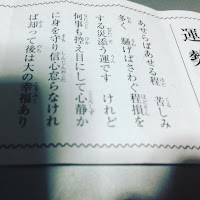 運勢
あせらばあせる程　苦しみ
多く　騒げばさわぐ程損を
する災添う運です　けれど
何事も控え目にして心静か
に身を守り信心怠らなけれ
ば却って後は大の幸福あり